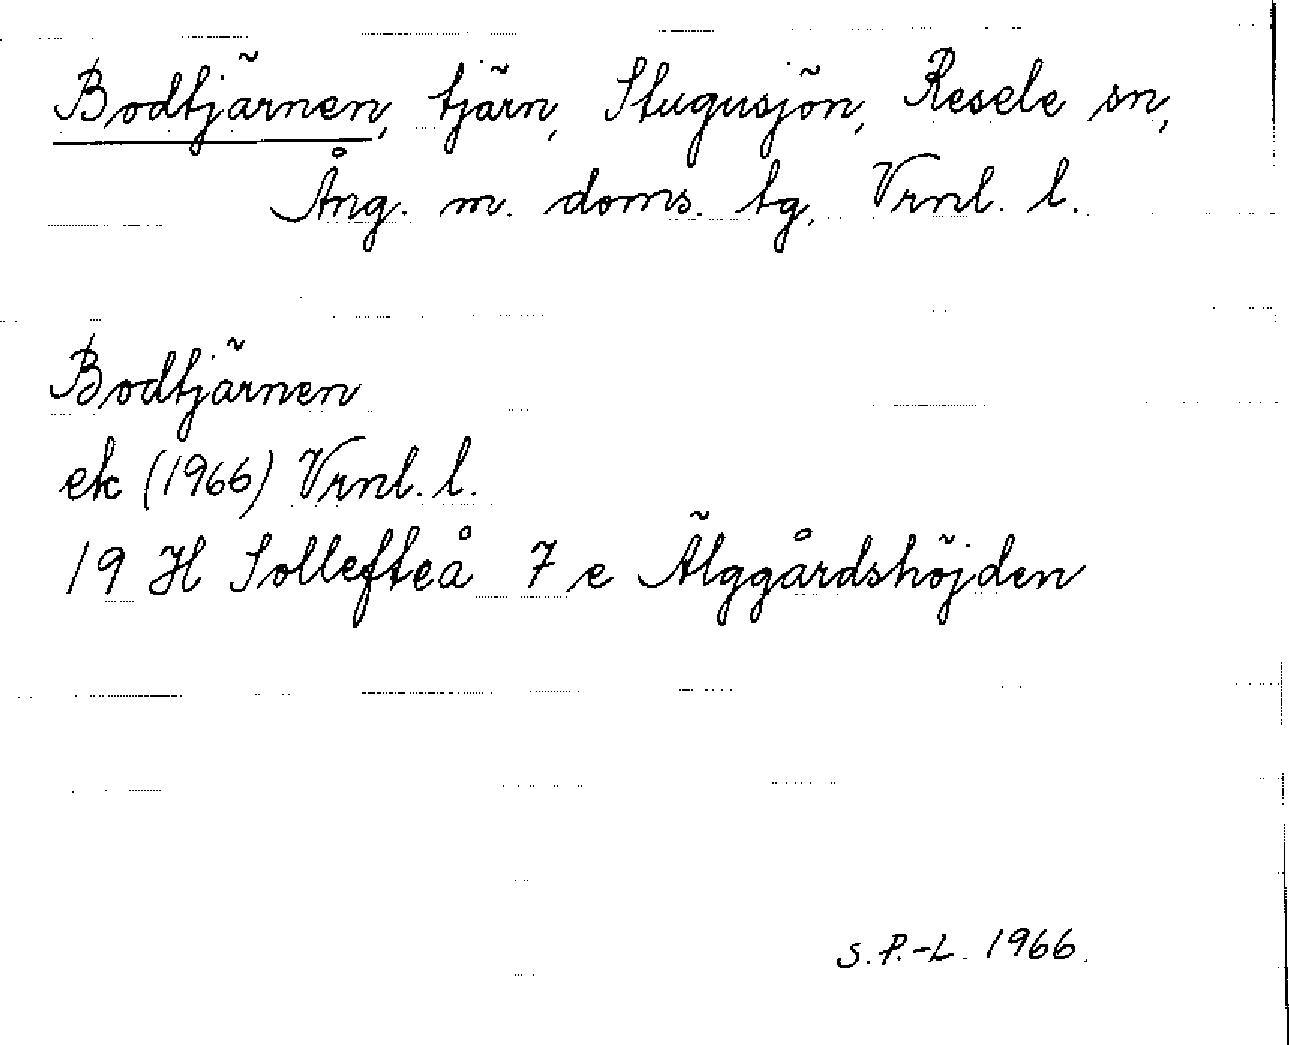 Bodtjärnen, tjärn, Stugusjön, Resele sn,
Ång. m. doms. tg, Vrnl. l.
Bodtjärnen
ek (1966) Vrnl. l.
19 H Sollefteå 7 e Älggårdshöjden
S. P.-L. 1966.